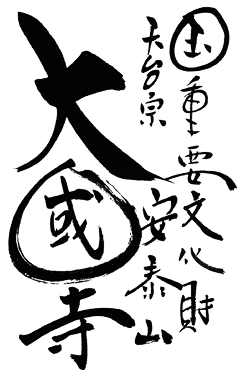 国重要文化財
天台宗
安泰山
大國寺